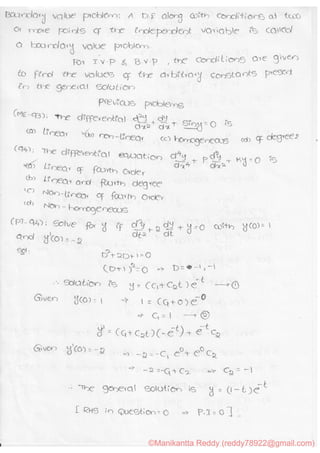 Boundary value problem: A D.E along with conditions at two
or more points of the independent variable is called
a boundary value problem.
For I.V.P & B.V.P, the conditions are given
to find the values of the arbitrary constants present
in the general solution
Previous problems
(ME-93): The differential d²y/dx² + dy/dx + siny = 0 is
(a) linear (b) non-linear (c) homogeneous (d) of degree 2
(94): The differential equation d⁴y/dx⁴ + P d²y/dx² + Ky = 0 is
(a) Linear of fourth order
(b) Linear and fourth degree
(c) Non-linear of fourth order
(d) Non-homogeneous
Solve for y if d²y/dt² + 2 dy/dt + y = 0 with y(0) = 1
and y'(0) = -2
Sol:
D² + 2D + 1 = 0
(D+1)² = 0 ⇒ D = -1, -1
∴ Solution is y = (C₁ + C₂t) e^-t → ①
Given y(0) = 1 ⇒ 1 = (C₁ + 0) e^-0
⇒ C₁ = 1 → ②
y' = (C₁ + C₂t)(-e^-t) + e^-t C₂
Given y'(0) = -2 ⇒ -2 = -C₁ e^0 + e^0 C₂
⇒ -2 = -C₁ + C₂ ⇒ C₂ = -1
∴ The general solution is y = (1-t) e^-t
[RHS in question = 0 ⇒ P.I = 0]
©Manikantta Reddy (reddy78922@gmail.com)